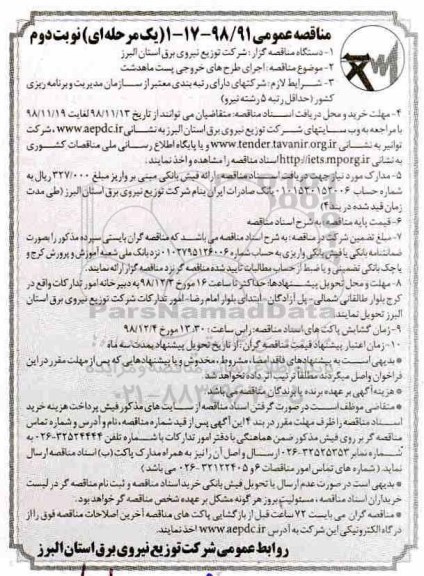 مناقصه عمومی ۹۸/۹۱-۱۷-۱ (یک مرحله‌ای) نوبت دوم
۱- دستگاه مناقصه گزار: شرکت توزیع نیروی برق استان البرز
۲- موضوع مناقصه: اجرای طرح های خروجی پست ماهدشت
۳- شرایط لازم: شرکتهای دارای رتبه بندی معتبر از سازمان مدیریت و برنامه ریزی
کشور (حداقل رتبه ۵ رشته نیرو)
۴- مهلت خرید و محل دریافت اسناد مناقصه: متقاضیان می توانند از تاریخ ۹۸/۱۱/۱۳ لغایت ۹۸/۱۱/۱۹
با مراجعه به وب سایتهای شرکت توزیع نیروی برق استان البرز به نشانی www.aepdc.ir، شرکت
توانیر به نشانی www.tender.tavanir.org.ir و یا پایگاه اطلاع رسانی ملی مناقصات کشوری
به نشانی http://iets.mporg.ir اسناد مناقصه را مشاهده و اخذ نمایند.
۵- مدارک مورد نیاز جهت دریافت اسناد مناقصه: ارائه فیش بانکی مبنی بر واریز مبلغ ۳۲۷/۰۰۰ ریال به
شماره حساب ۰۱۰۱۵۲۰۱۵۲۰۰۶ بانک صادرات ایران بنام شرکت توزیع نیروی برق استان البرز (طی مدت
زمان قید شده در بند ۴)
۶- قیمت پایه مناقصه: به شرح اسناد مناقصه
۷- مبلغ تضمین شرکت در مناقصه: به شرح اسناد مناقصه می باشد که مناقصه گران بایستی سپرده مذکور را بصورت
ضمانتنامه بانکی یا فیش بانکی واریزی به حساب شماره ۰۱۰۲۷۹۵۱۲۶۰۰۶ نزد بانک ملی شعبه آموزش و پرورش کرج و
یا چک بانکی تضمینی و یا ضبط از حساب مطالبات تأیید شده مناقصه گر نزد مناقصه گزار ارائه نمایند.
۸- مهلت و محل تحویل پیشنهادها: حداکثر تا ساعت ۱۶ مورخ ۹۸/۱۲/۳ به دبیرخانه امور تدارکات واقع در
کرج بلوار طالقانی شمالی- پل آزادگان- ابتدای بلوار امام رضا- امور تدارکات شرکت توزیع نیروی برق استان
البرز تحویل نمایند.
۹- زمان گشایش پاکت های اسناد مناقصه: راس ساعت: ۱۳:۳۰ مورخ ۹۸/۱۲/۴
۱۰- زمان اعتبار پیشنهاد قیمت مناقصه گران: از تاریخ تحویل پیشنهاد بمدت سه ماه
* بدیهی است به پیشنهادهای فاقد امضا، مشروط، مخدوش و یا پیشنهادهایی که پس از مهلت مقرر در این
فراخوان واصل میگردند مطلقا ترتیب اثر داده نخواهد شد
* هزینه آگهی بر عهده برنده یا برندگان مناقصه می باشد
* متقاضی موظف است در صورت گرفتن اسناد مناقصه از سایت های مذکور فیش پرداخت هزینه خرید
اسناد مناقصه را ظرف مهلت مقرر در بند ۴ این آگهی پس از قید شماره مناقصه، نام و آدرس و شماره تماس
مناقصه گر بر روی فیش مذکور ضمن هماهنگی با دفتر امور تدارکات با شماره تلفن ۳۲۵۲۴۴۴۴-۰۲۶ به
شماره نمابر ۳۲۵۲۵۳۵۳-۰۲۶ ارسال و اصل آن را نیز به همراه مدارک پاکت (ب) اسناد مناقصه ارسال
نماید. (شماره های تماس امور مناقصات ۶ و ۳۲۱۲۲۴۰۵-۰۲۶ می باشد)
* بدیهی است در صورت عدم ارسال یا تحویل فیش بانکی خرید اسناد مناقصه و ثبت نام مناقصه گر در لیست
خریداران اسناد مناقصه، مسئولیت بروز هر گونه مشکل بر عهده شخص مناقصه گر خواهد بود.
* مناقصه گران می بایست ۷۲ ساعت قبل از بازگشایی پاکت های مناقصه آخرین اصلاحات مناقصه فوق را از
درگاه الکترونیکی این شرکت به آدرس www.aepdc.ir اخذ نمایند.
روابط عمومی شرکت توزیع نیروی برق استان البرز
ParsNamadData